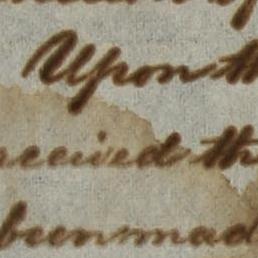 Upon th
received th
been mad